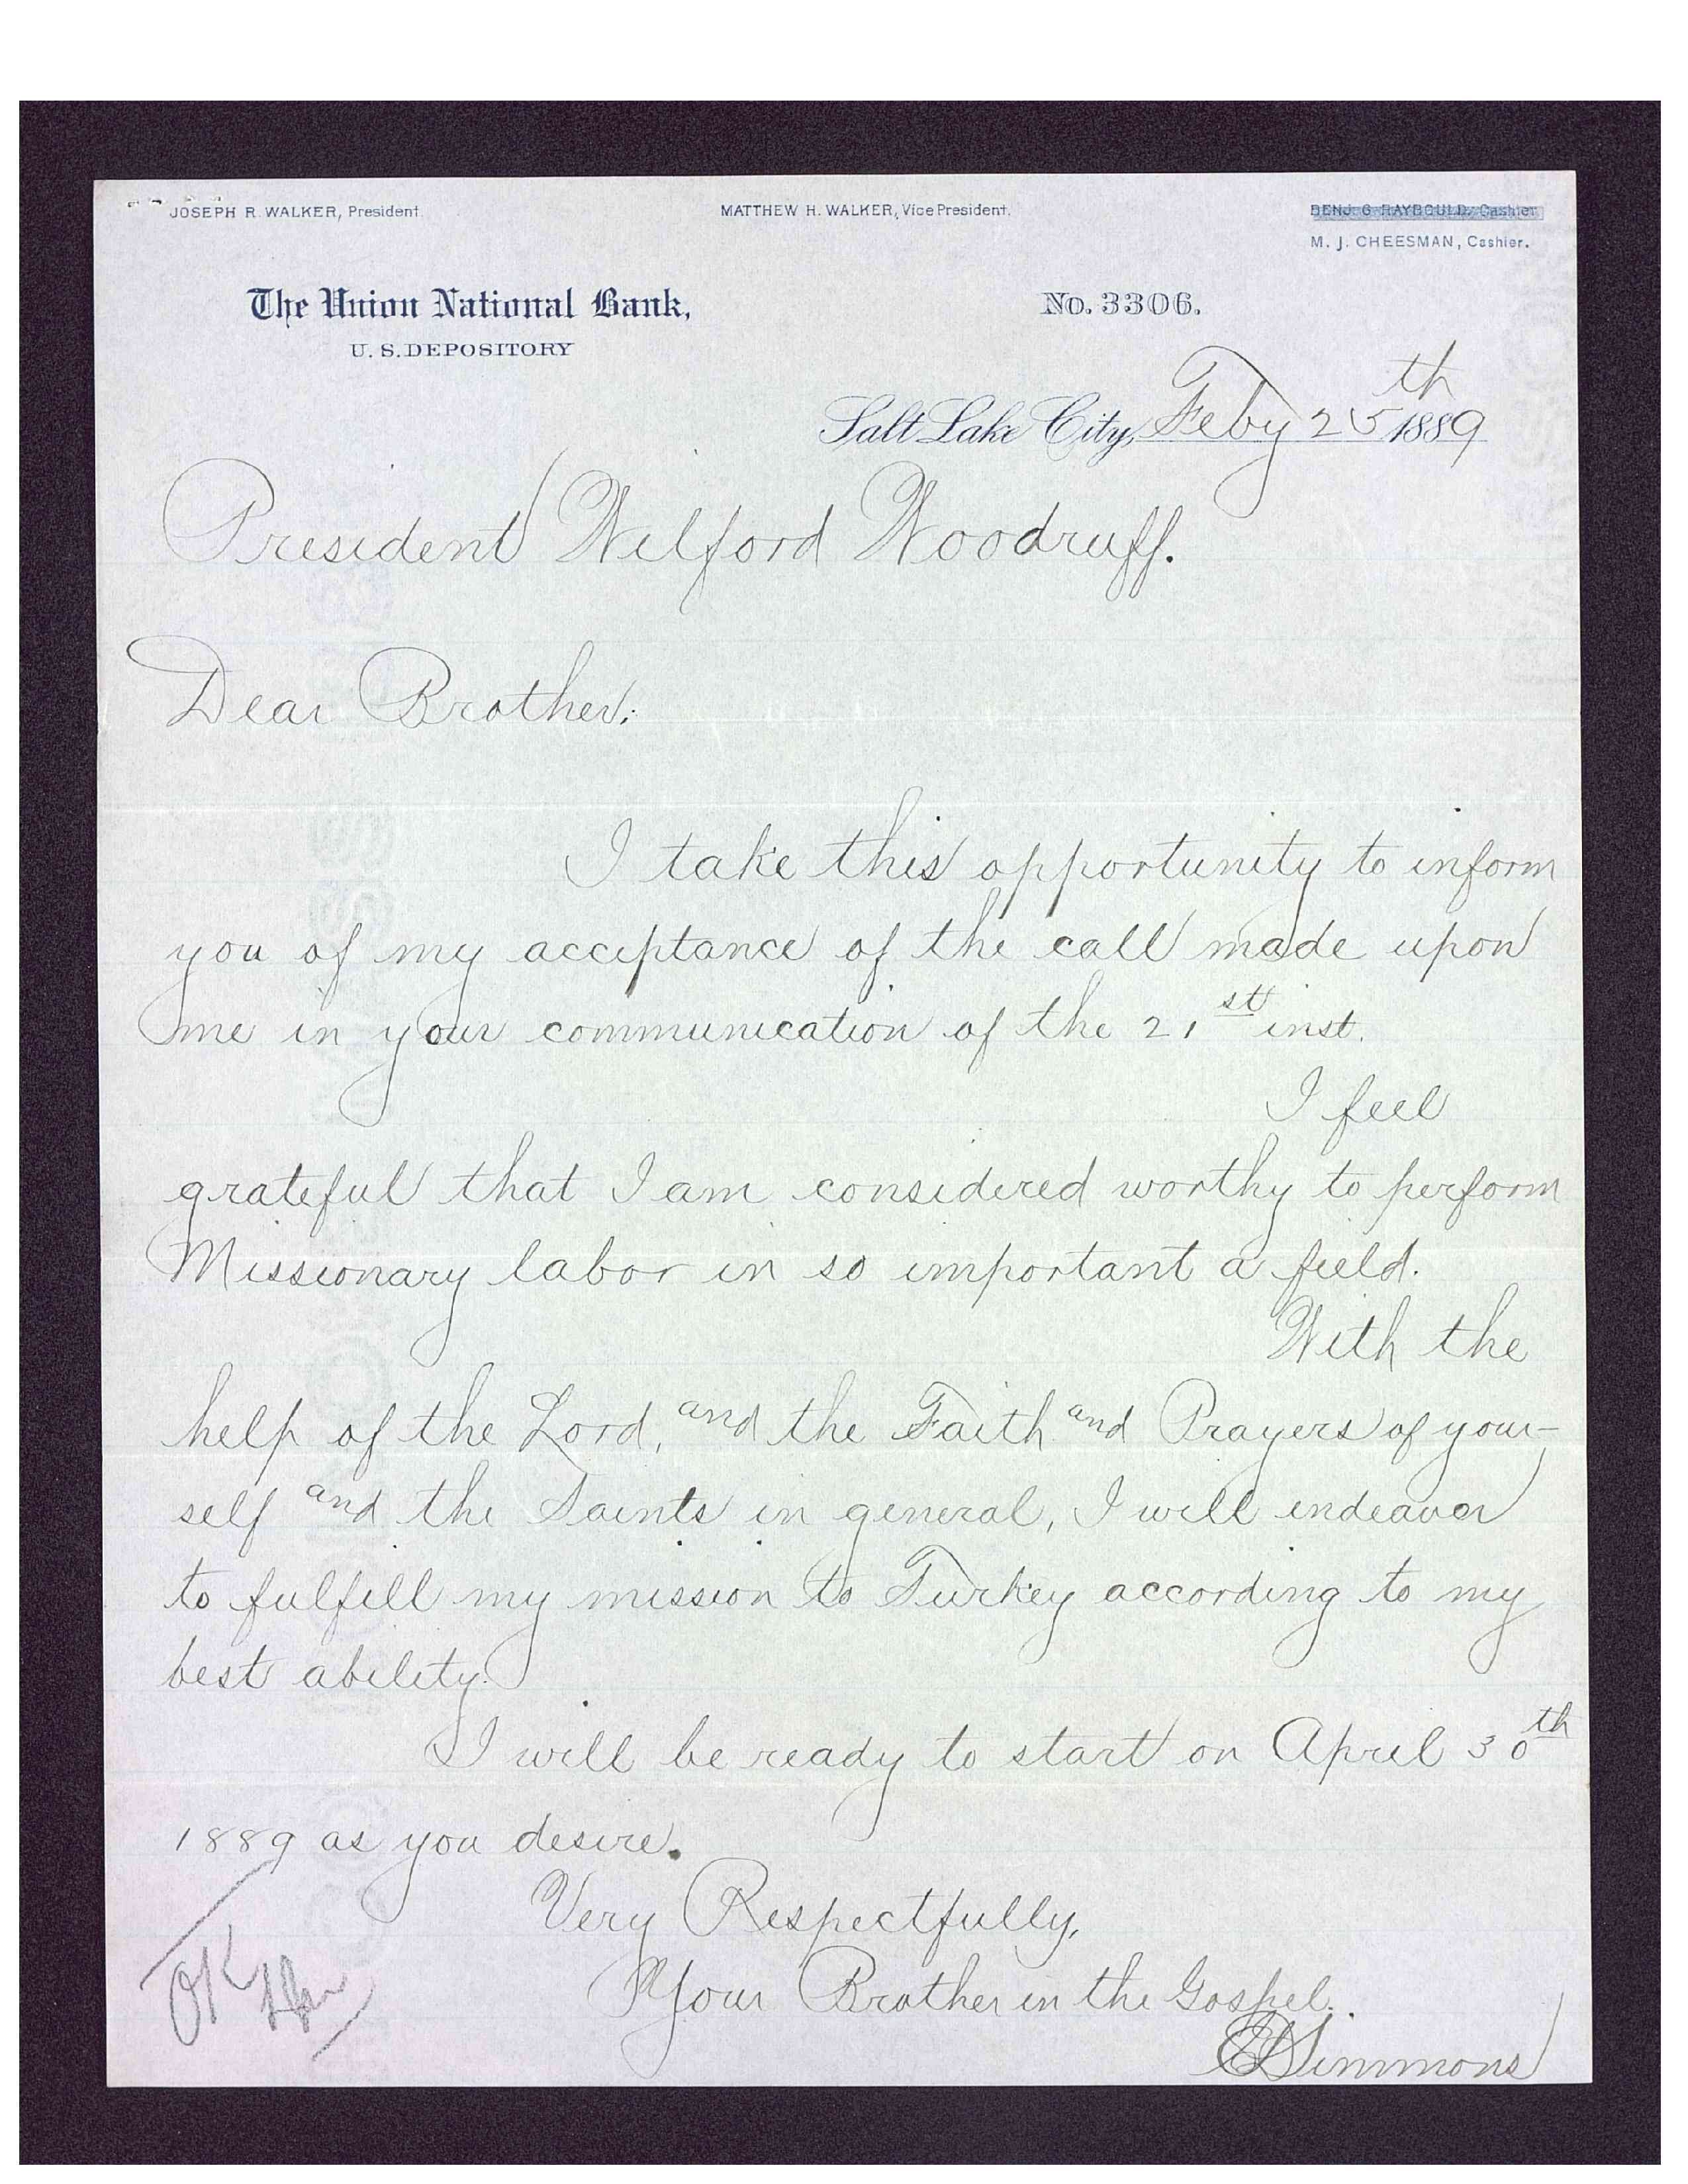 JOSEPH R. WALKER, President. MATTHEW H. WALKER, Vice President. BENJ. G. RAYBOULD, Cashier.
M. J. CHEESMAN, Cashier.
The Union National Bank, No. 3306.
U. S. DEPOSITORY
Salt Lake City, Feby 25th 1889
President Wilford Woodruff.
Dear Brother:
I take this opportunity to inform
you of my acceptance of the call made upon
me in your communication of the 21st inst.
I feel
grateful that I am considered worthy to perform
Missionary labor in so important a field.
With the
help of the Lord, and the Faith and Prayers of your-
self and the Saints in general, I will endeavor
to fulfill my mission to Turkey according to my
best ability.
I will be ready to start on April 30th
1889 as you desire.
Very Respectfully,
Your Brother in the Gospel.
Simmons
OK